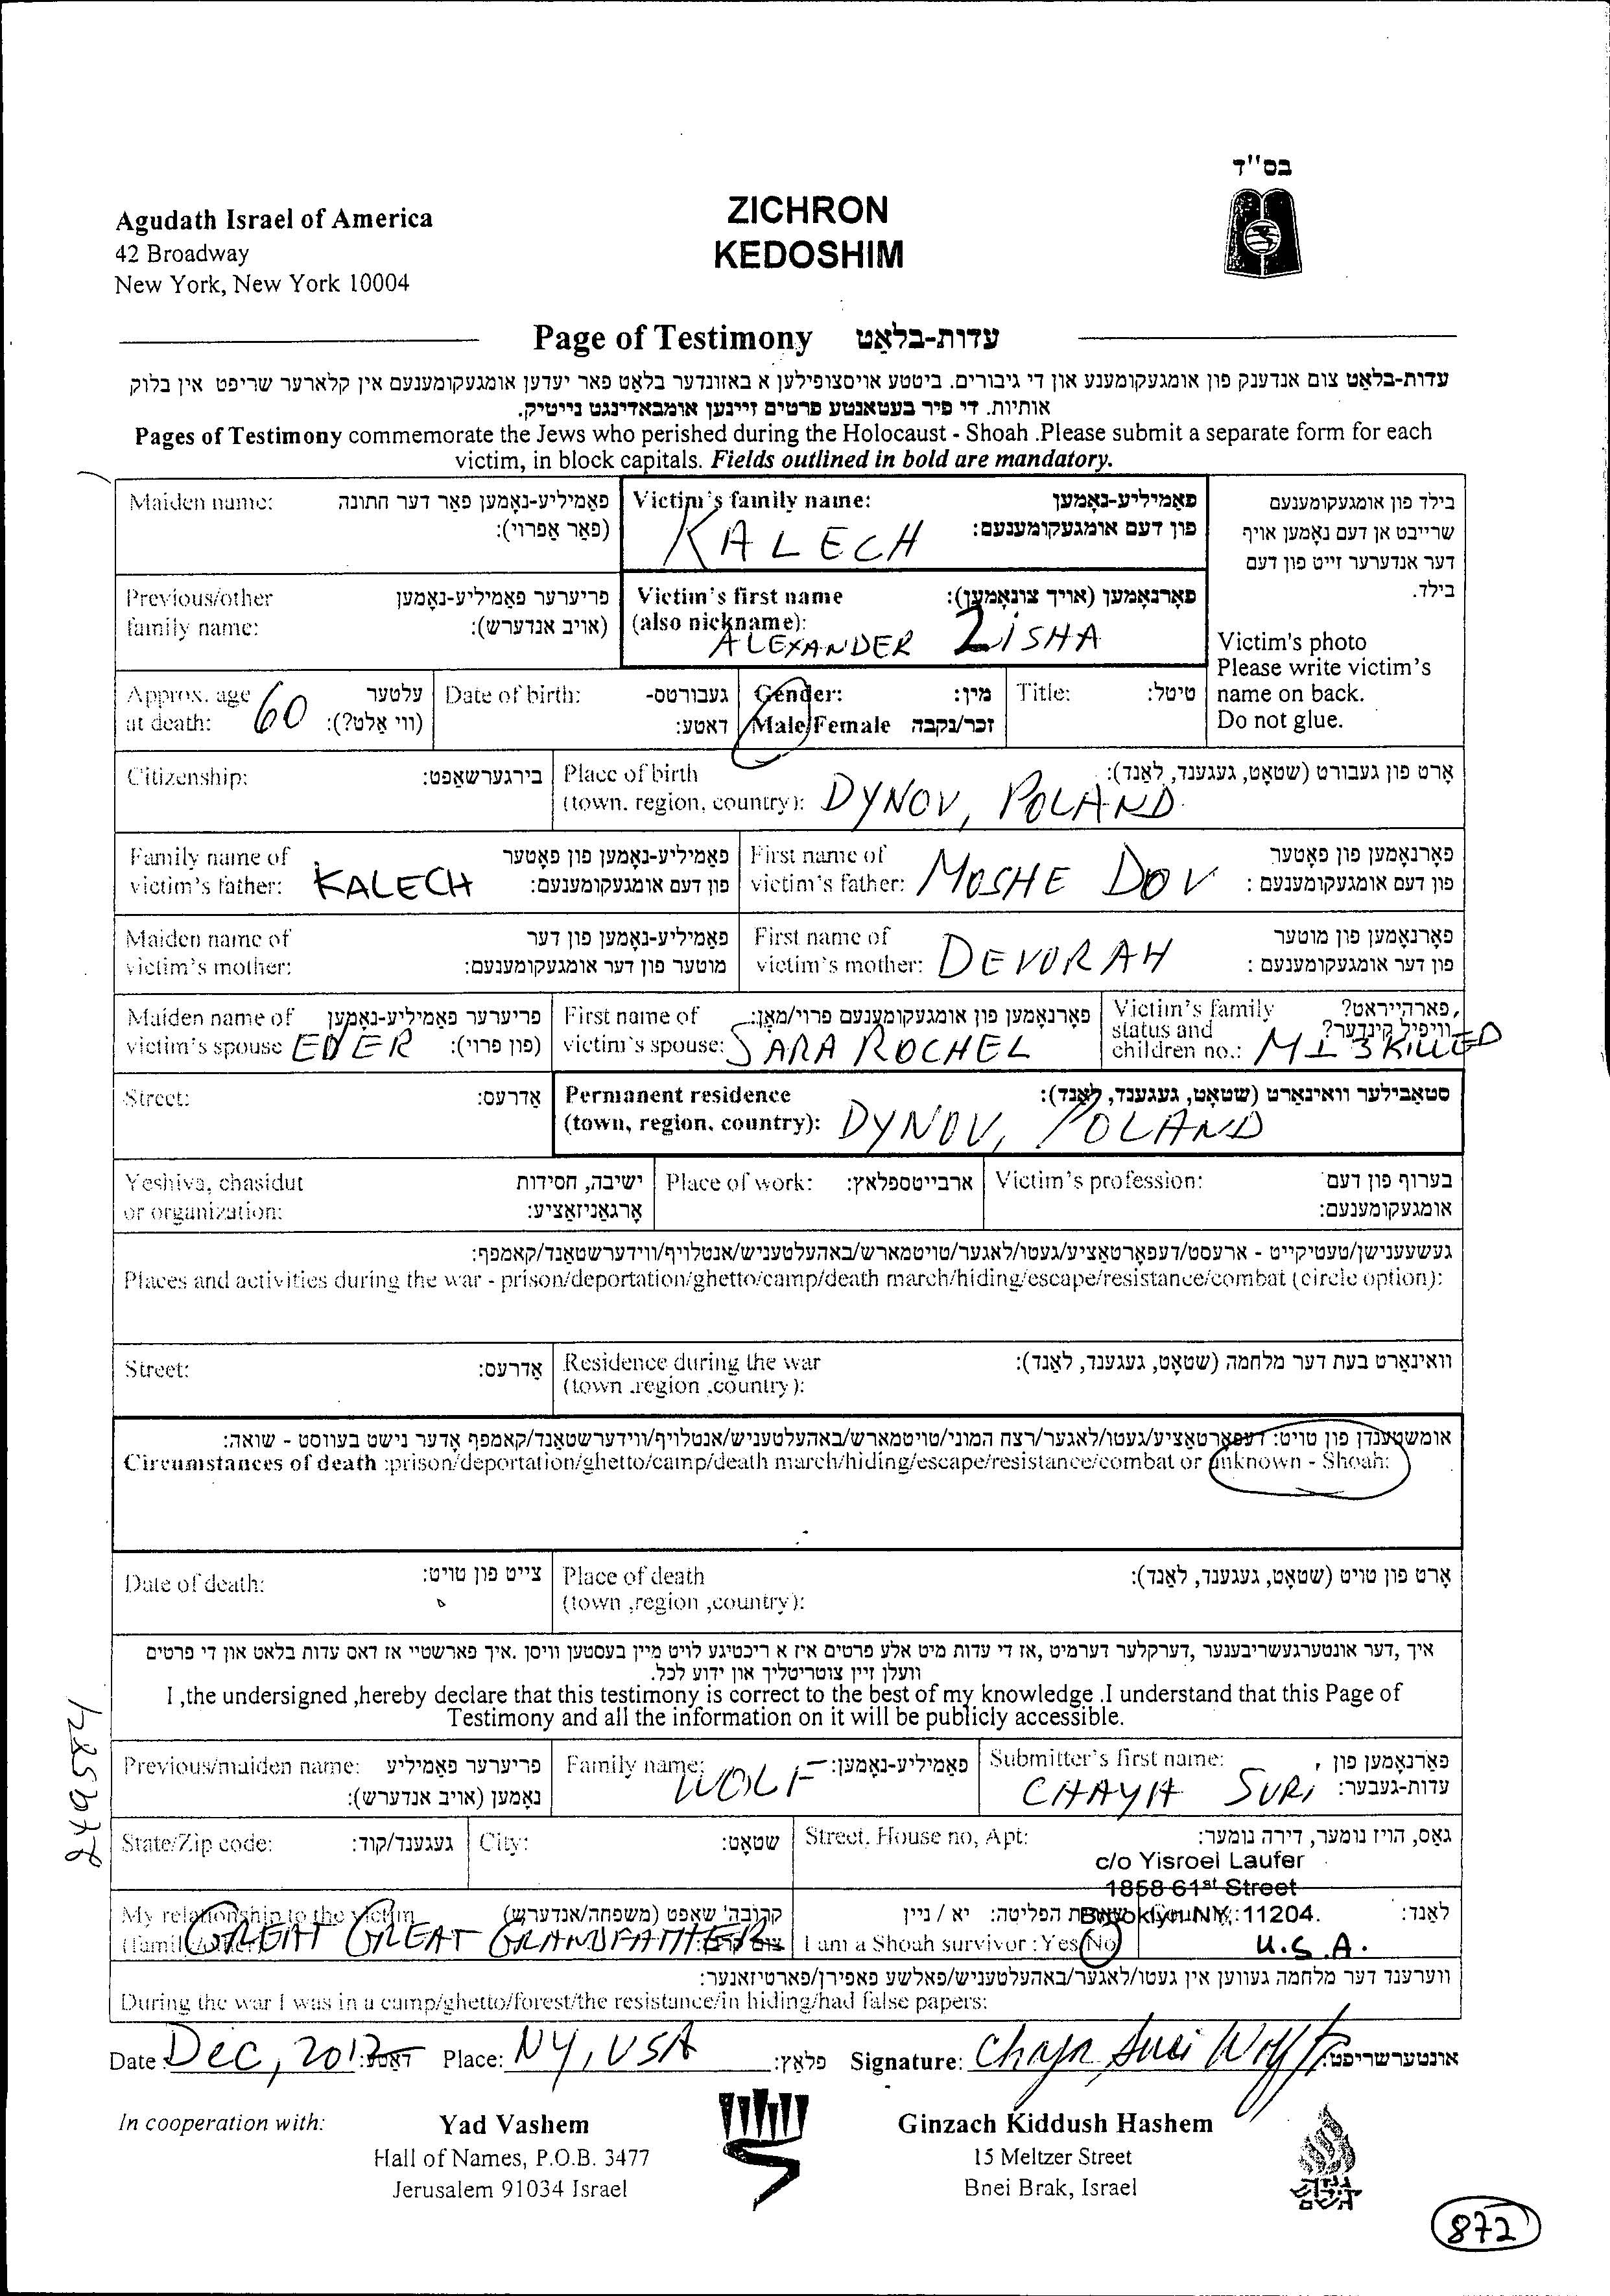 בס"ד
Agudath Israel of America
42 Broadway
New York, New York 10004
ZICHRON
KEDOSHIM
Page of Testimony עדות-בלאַט
עדות-בלאַט צום אנדענק פון אומגעקומענע און די גיבורים. ביטטע אויסצופילען א באזונדער בלאַט פאר יעדען אומגעקומענעם אין קלארער שריפט אין בלוק
אותיות. די פיר בעטאנטע פרטים זיינען אומבאדינגט נייטיק.
Pages of Testimony commemorate the Jews who perished during the Holocaust - Shoah .Please submit a separate form for each
victim, in block capitals. Fields outlined in bold are mandatory.
Maiden name: פאַמיליע-נאָמען פאַר דער חתונה
(פאַר אַפרוי):
Victim's family name: פאַמיליע-נאָמען
פון דעם אומגעקומענעם:
KALECH
בילד פון אומגעקומענעם
שרייבט אן דעם נאָמען אויף
דער אנדערער זייט פון דעם
בילד.
Victim's photo
Please write victim's
name on back.
Do not glue.
Previous/other פריערער פאַמיליע-נאָמען
family name: (אויב אנדערש):
Victim's first name פאָרנאָמען (אויך צונאָמען):
(also nickname):
ALEXANDER ZISHA
Approx. age עלטער
at death: 60 (ווי אַלט?):
Date of birth: געבורטס-
דאטע:
Gender: מין:
Male/Female זכר/נקבה
Title: טיטל:
Citizenship: בירגערשאַפט:
Place of birth אָרט פון געבורט (שטאָט, געגענד, לאַנד):
(town, region, country): DYNOV, POLAND
Family name of פאַמיליע-נאָמען פון פאָטער
victim's father: KALECH פון דעם אומגעקומענעם:
First name of פאָרנאָמען פון פאָטער
victim's father: MOSHE DOV פון דעם אומגעקומענעם :
Maiden name of פאַמיליע-נאָמען פון דער
victim's mother: מוטער פון דער אומגעקומענעם:
First name of פאָרנאָמען פון מוטער
victim's mother: DEVORAH פון דער אומגעקומענעם :
Maiden name of פריערער פאַמיליע-נאָמען
victim's spouse EDER (פון פרוי):
First name of פאָרנאָמען פון אומגעקומענעם פרוי/מאַן:
victim's spouse: SARA ROCHEL
Victim's family פארהייראט?,
status and וויפיל קינדער?
children no.: M 3 KILLED
Street: אַדרעס:
Permanent residence סטאַבילער וואוינאָרט (שטאָט, געגענד, לאַנד):
(town, region, country): DYNOV, POLAND
Yeshiva, chasidut ישיבה, חסידות
or organization: אָרגאַניזאַציע:
Place of work: ארבייטספּלאַץ:
Victim's profession: בערוף פון דעם
אומגעקומענעם:
געשעענישן/טעטיקייט - ארעסט/דעפּאָרטאַציע/געטו/לאגער/טויטמארש/באהעלטעניש/אנטלויף/ווידערשטאַנד/קאמפף:
Places and activities during the war - prison/deportation/ghetto/camp/death march/hiding/escape/resistance/combat (circle option):
Street: אַדרעס:
Residence during the war וואוינאָרט בעת דער מלחמה (שטאָט, געגענד, לאַנד):
(town ,region ,country):
אומשטענדן פון טויט: דעפּאָרטאַציע/געטו/לאגער/רצח המוני/טויטמארש/באהעלטעניש/אנטלויף/ווידערשטאַנד/קאמפף אָדער נישט בעוווסט - שואה:
Circumstances of death :prison/deportation/ghetto/camp/death march/hiding/escape/resistance/combat or unknown - Shoah:
Date of death: צייט פון טויט:
Place of death אָרט פון טויט (שטאָט, געגענד, לאַנד):
(town ,region ,country):
איך, דער אונטערגעשריבענער, דערקלער דערמיט, אז די עדות מיט אלע פרטים איז א ריכטיגע לויט מיין בעסטען וויסן .איך פארשטיי אז דאס עדות בלאט און די פרטים
וועלן זיין צוטריטליך און ידוע לכל.
I ,the undersigned ,hereby declare that this testimony is correct to the best of my knowledge .I understand that this Page of
Testimony and all the information on it will be publicly accessible.
Previous/maiden name: פריערער פאַמיליע
נאָמען (אויב אנדערש):
Family name: WOLF פאַמיליע-נאָמען:
Submitter's first name: פאָרנאָמען פון
CHAYA SURI עדות-געבער:
State/Zip code: געגענד/קוד:
City: שטאָט:
Street, House no, Apt: גאַס, הויז נומער, דירה נומער:
c/o Yisroel Laufer
1858 61st Street
Brooklyn NY, 11204.
לאַנד:
U.S.A.
My relationship to the victim קרובה'שאַפט (משפחה/אנדערש)
GREAT GREAT GRANDFATHER
שארית הפליטה: יא / ניין
I am a Shoah survivor :Yes/No
ווערענד דער מלחמה געווען אין געטו/לאגער/באהעלטעניש/פאלשע פאפירן/פארטיזאנער:
During the war I was in a camp/ghetto/forest/the resistance/in hiding/had false papers:
Date: Dec, 2012 דאטע: Place: NY, USA פלאַץ: Signature: Chaya Suri Wolf אונטערשריפט:
In cooperation with:
Yad Vashem
Hall of Names, P.O.B. 3477
Jerusalem 91034 Israel
Ginzach Kiddush Hashem
15 Meltzer Street
Bnei Brak, Israel
גנזך
קידוש
השם
872